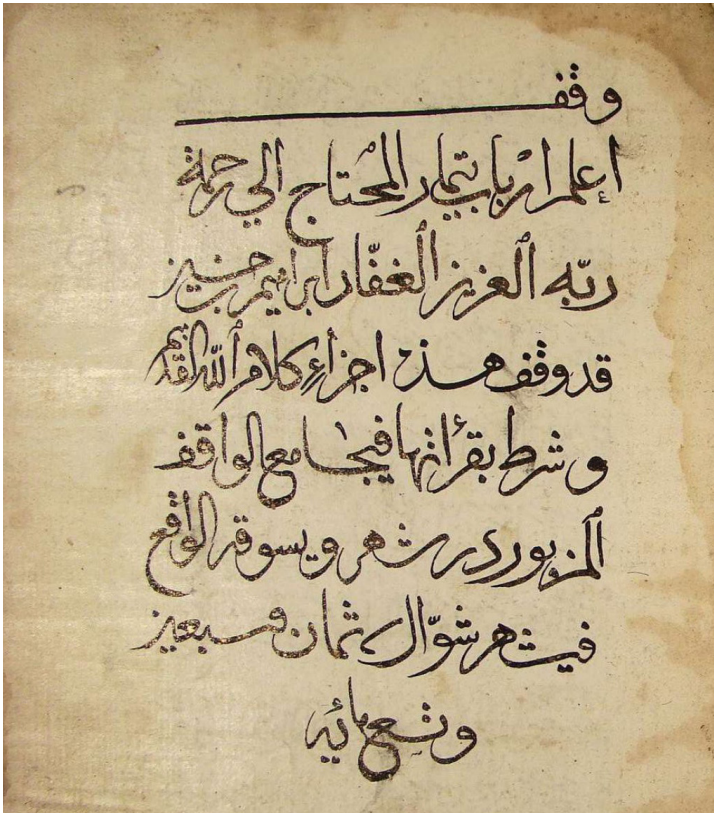 وقف
إعلم ارباب تيمار المحتاج الي رحمة
ربّه العزيز الغفّار ابراهيم بن
قد وقف هذه اجزاءِ كلام الله القديم
وشرط بقرأتها في جامع الواقف
المزبور در شهر ويسوقه الواقع
في شهر شوّال ثمان وسبعين
وتسع مائه